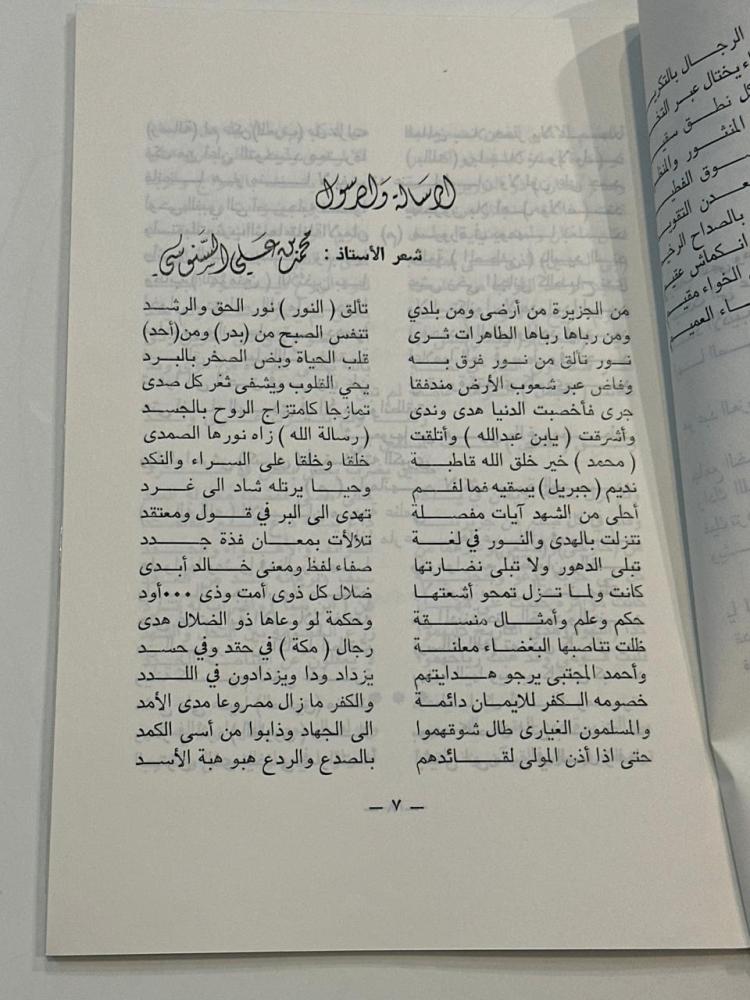 الرسالة والرسول
شعر الأستاذ : محمد بن علي السنوسي
من الجزيرة من أرضى ومن بلدي تألق ( النور ) نور الحق والرشد
ومن رباها رباها الطاهرات ثرى تتنفس الصبح من (بدر) ومن(أحد)
نور تألق من نور فرق به قلب الحياة وبض الصخر بالبرد
وفاض عبر شعوب الأرض مندفقا يحي القلوب ويشفى ثغر كل صدى
جرى فأخصبت الدنيا هدى وندى تمازجا كامتزاج الروح بالجسد
وأشرقت ( يابن عبدالله ) وأتلقت ( رسالة الله ) زاه نورها الصمدى
( محمد ) خير خلق الله قاطبة خلقا وخلقا على السراء والنكد
نديم (جبريل) يسقيه فما لفم وحيا يرتله شاد الى غرد
أحلى من الشهد آيات مفصلة تهدى الى البر في قول ومعتقد
تنزلت بالهدى والنور في لغة تلألأت بمعان فذة جدد
تبلى الدهور ولا تبلى نضارتها صفاء لفظ ومعنى خالد أبدى
كانت ولما تزل تمحو أشعتها ضلال كل ذوى أمت وذى ...أود
حكم وعلم وأمثال منسقة وحكمة لو وعاها ذو الضلال هدى
ظلت تناصبها البغضاء معلنة رجال ( مكة ) في حقد وفي حسد
وأحمد المجتبى يرجو هدايتهم يزداد ودا ويزدادون في اللدد
خصومه الكفر للايمان دائمة والكفر ما زال مصروعا مدى الأمد
والمسلمون الغيارى طال شوقهموا الى الجهاد وذابوا من أسى الكمد
حتى اذا أذن المولى لقائدهم بالصدع والردع هبو هبة الأسد
— ٧ —
الرجال
يختال عبر
كل نطق
المنثور
بالصداح
انكماش
الخواء